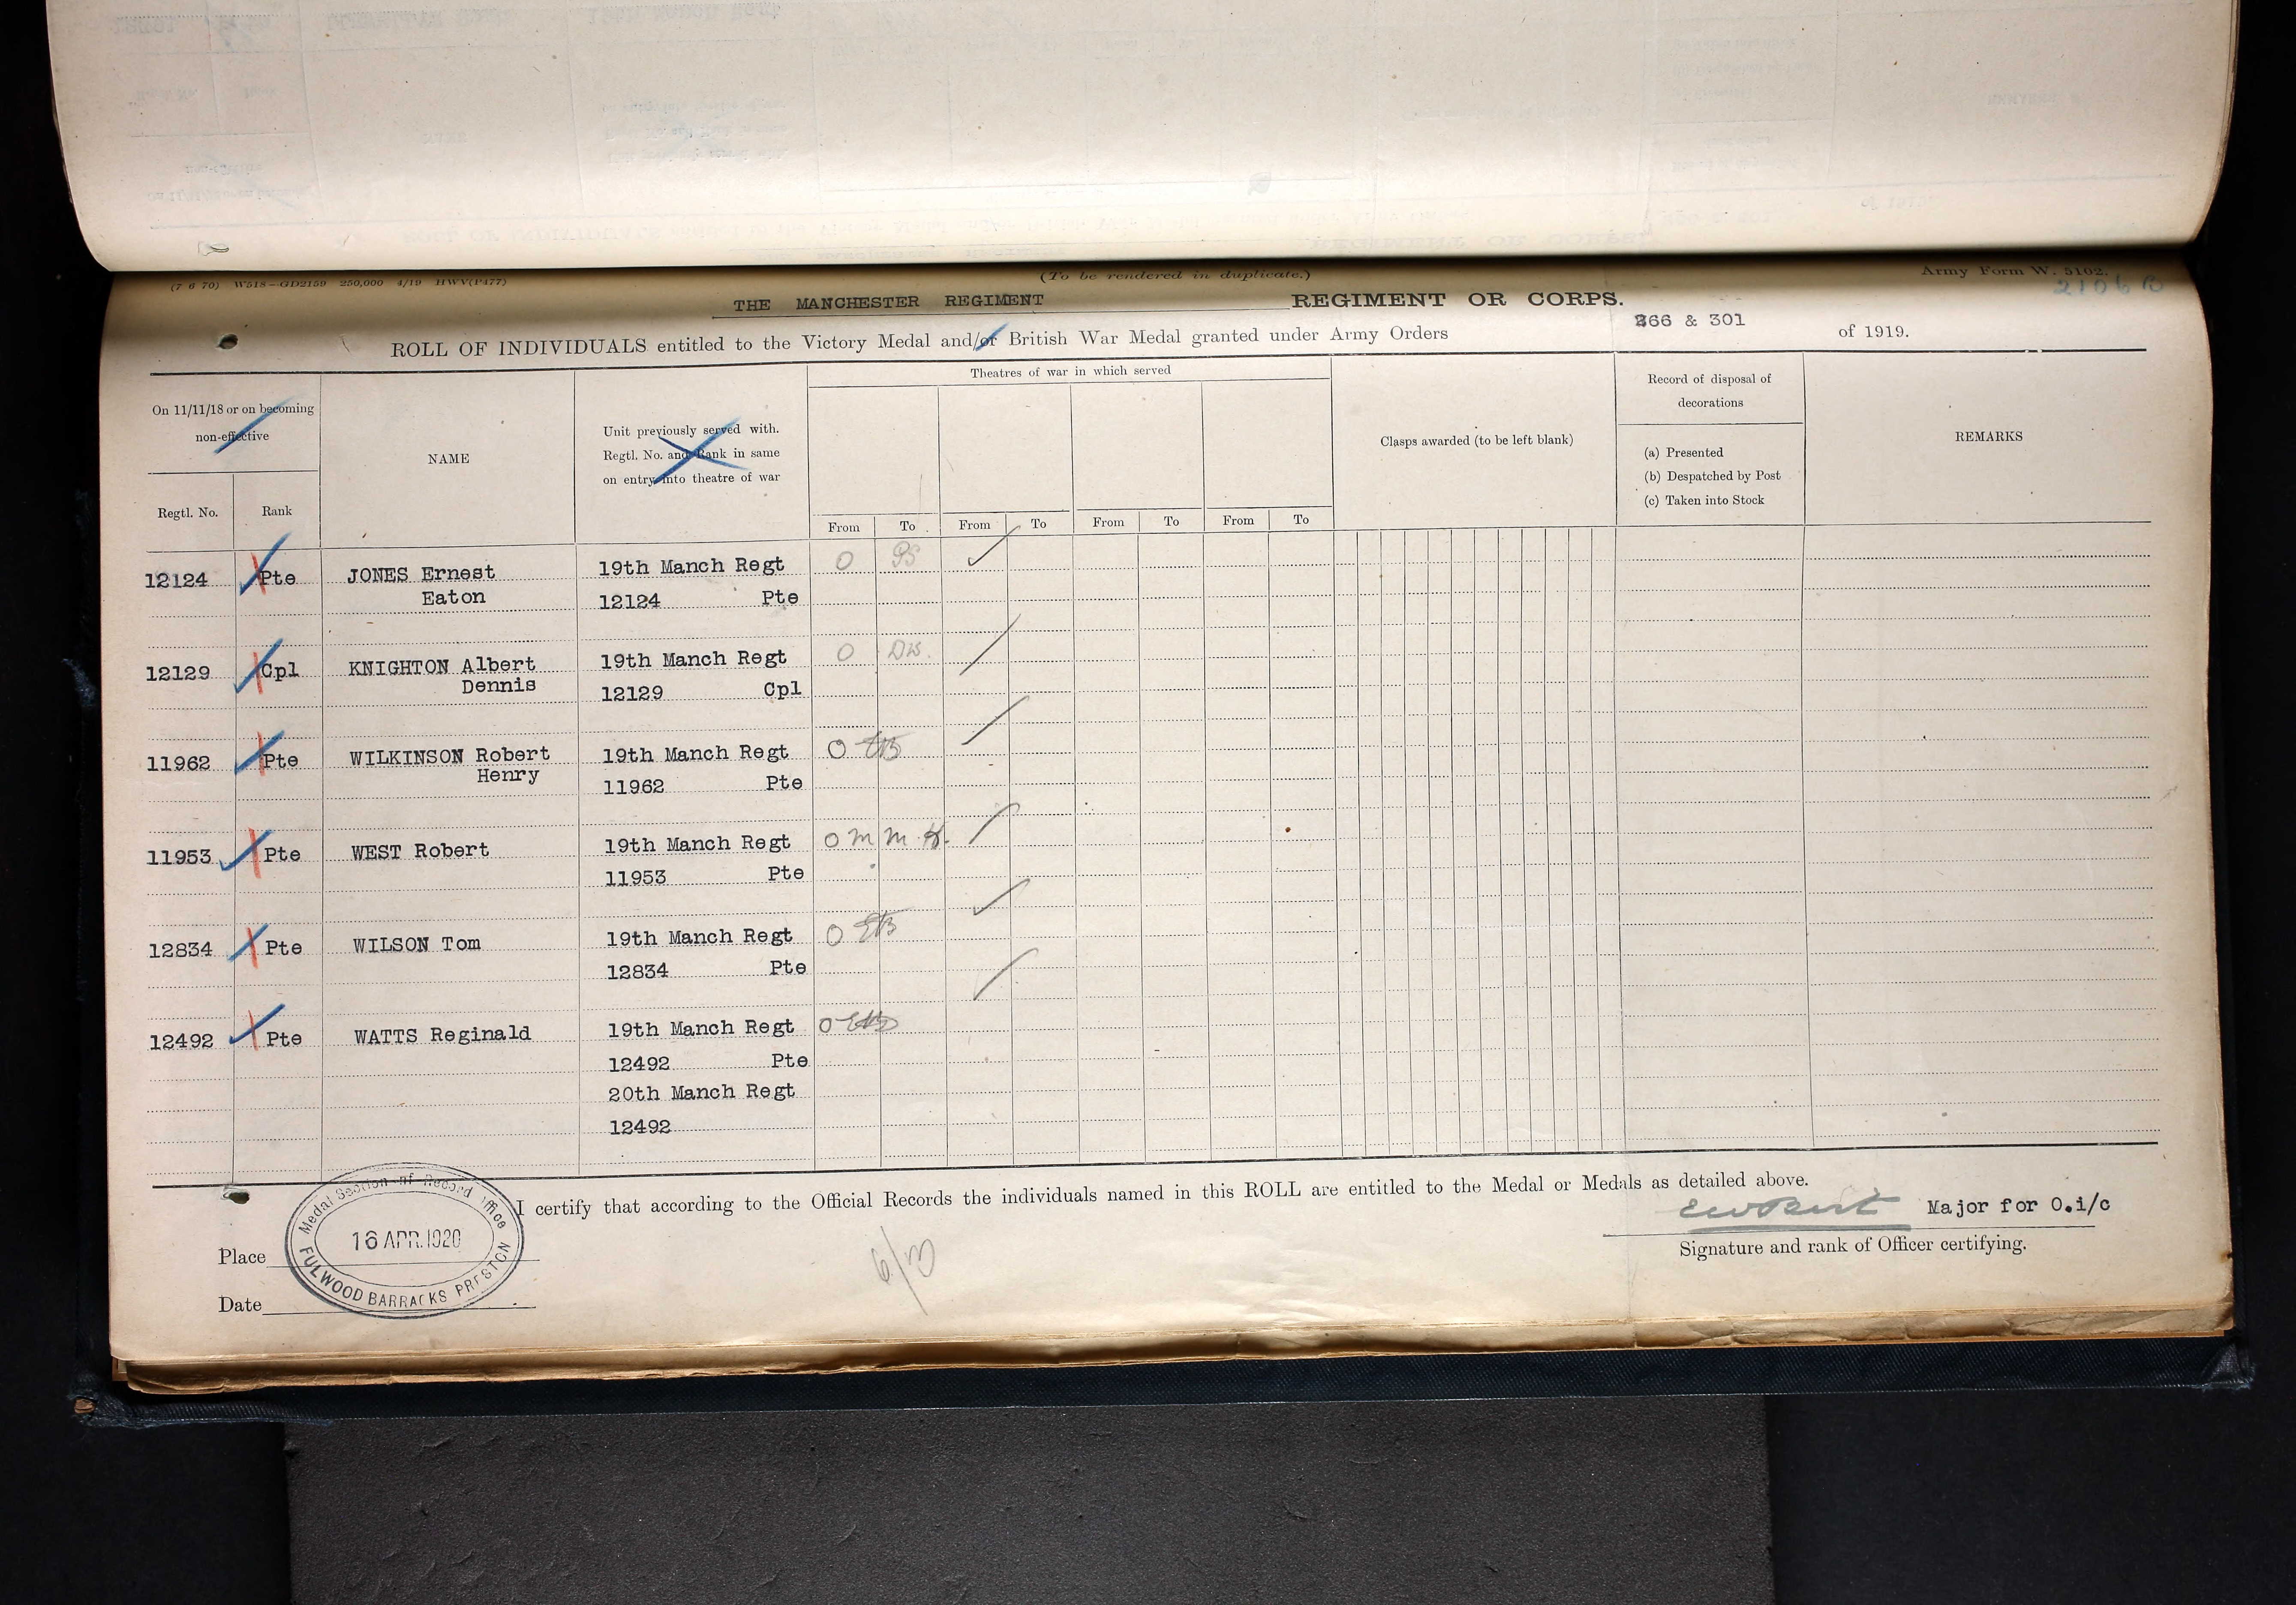 (7 6 70) W518—GD2159 250,000 4/19 HWV(P477)
(To be rendered in duplicate.)
Army Form W. 5102.
2106 B
THE MANCHESTER REGIMENT REGIMENT OR CORPS.
ROLL OF INDIVIDUALS entitled to the Victory Medal and/or British War Medal granted under Army Orders 266 & 301 of 1919.
On 11/11/18 or on becoming
non-effective
Regtl. No.
Rank
NAME
Unit previously served with.
Regtl. No. and Rank in same
on entry into theatre of war
Theatres of war in which served
From To From To From To From To
Clasps awarded (to be left blank)
Record of disposal of
decorations
(a) Presented
(b) Despatched by Post
(c) Taken into Stock
REMARKS
12124 Pte JONES Ernest 19th Manch Regt O
Eaton 12124 Pte
12129 Cpl KNIGHTON Albert 19th Manch Regt O
Dennis 12129 Cpl
11962 Pte WILKINSON Robert 19th Manch Regt O
Henry 11962 Pte
11953 Pte WEST Robert 19th Manch Regt O
11953 Pte
12834 Pte WILSON Tom 19th Manch Regt O
12834 Pte
12492 Pte WATTS Reginald 19th Manch Regt O
12492 Pte
20th Manch Regt
12492
I certify that according to the Official Records the individuals named in this ROLL are entitled to the Medal or Medals as detailed above.
Major for O.i/c
Signature and rank of Officer certifying.
Place
Date
Medal Section of Record Office
16 APR. 1920
FULWOOD BARRACKS PRESTON